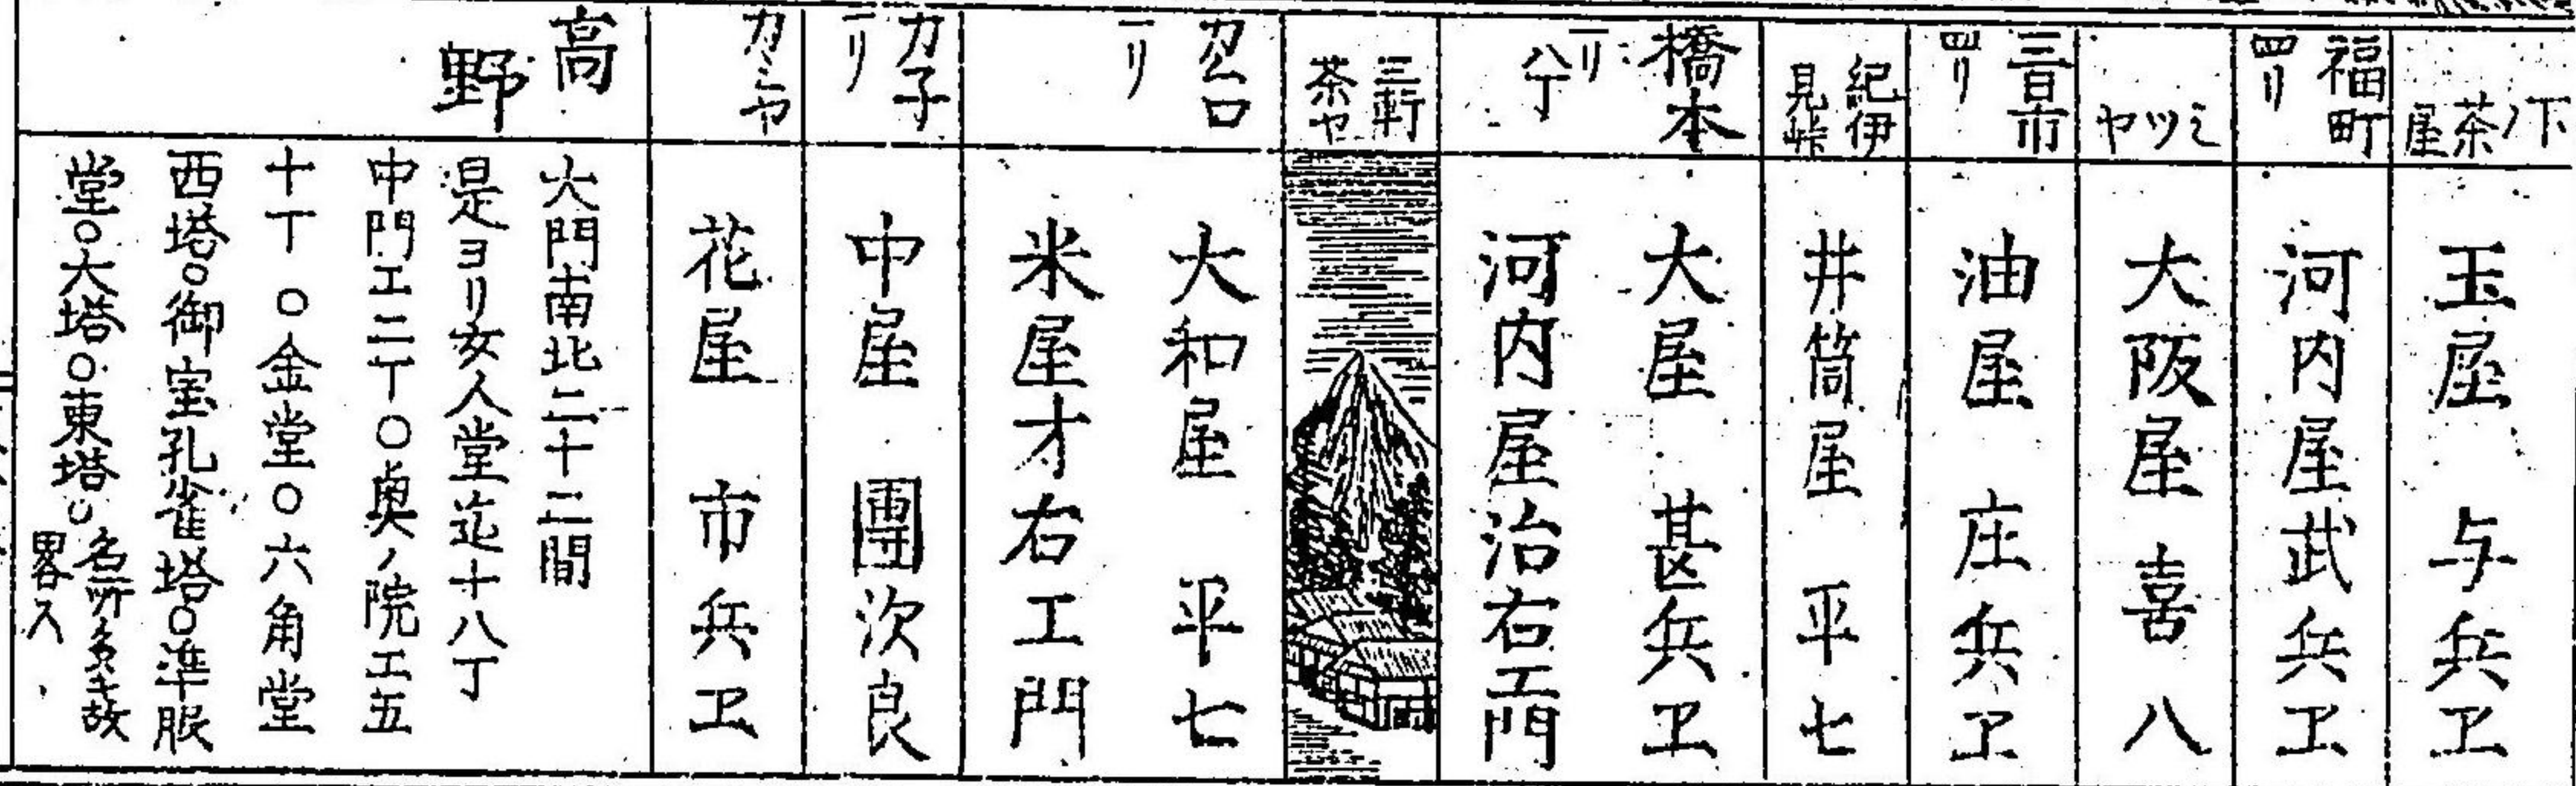 下ノ茶屋
玉屋 与兵ヱ
福町
四リ
河内屋武兵ヱ
ミツヤ
大阪屋喜八
三日市
四リ
油屋 庄兵ヱ
紀伊
見峠
井筒屋 平七
橋本
一リ
八丁
大屋 甚兵ヱ
河内屋治右エ門
三軒
茶ヤ
カムロ
一リ
大和屋 平七
米屋才右エ門
カ子
一リ
中屋 團次良
カミヤ
花屋 市兵ヱ
高野
大門南北二十二間
是ヨリ女人堂迄十八丁
中門エ二丁○奥ノ院エ五
十丁 ○金堂○六角堂
西塔○御室孔雀塔○準胝
堂○大塔○東塔○
名所多キ故
畧ス